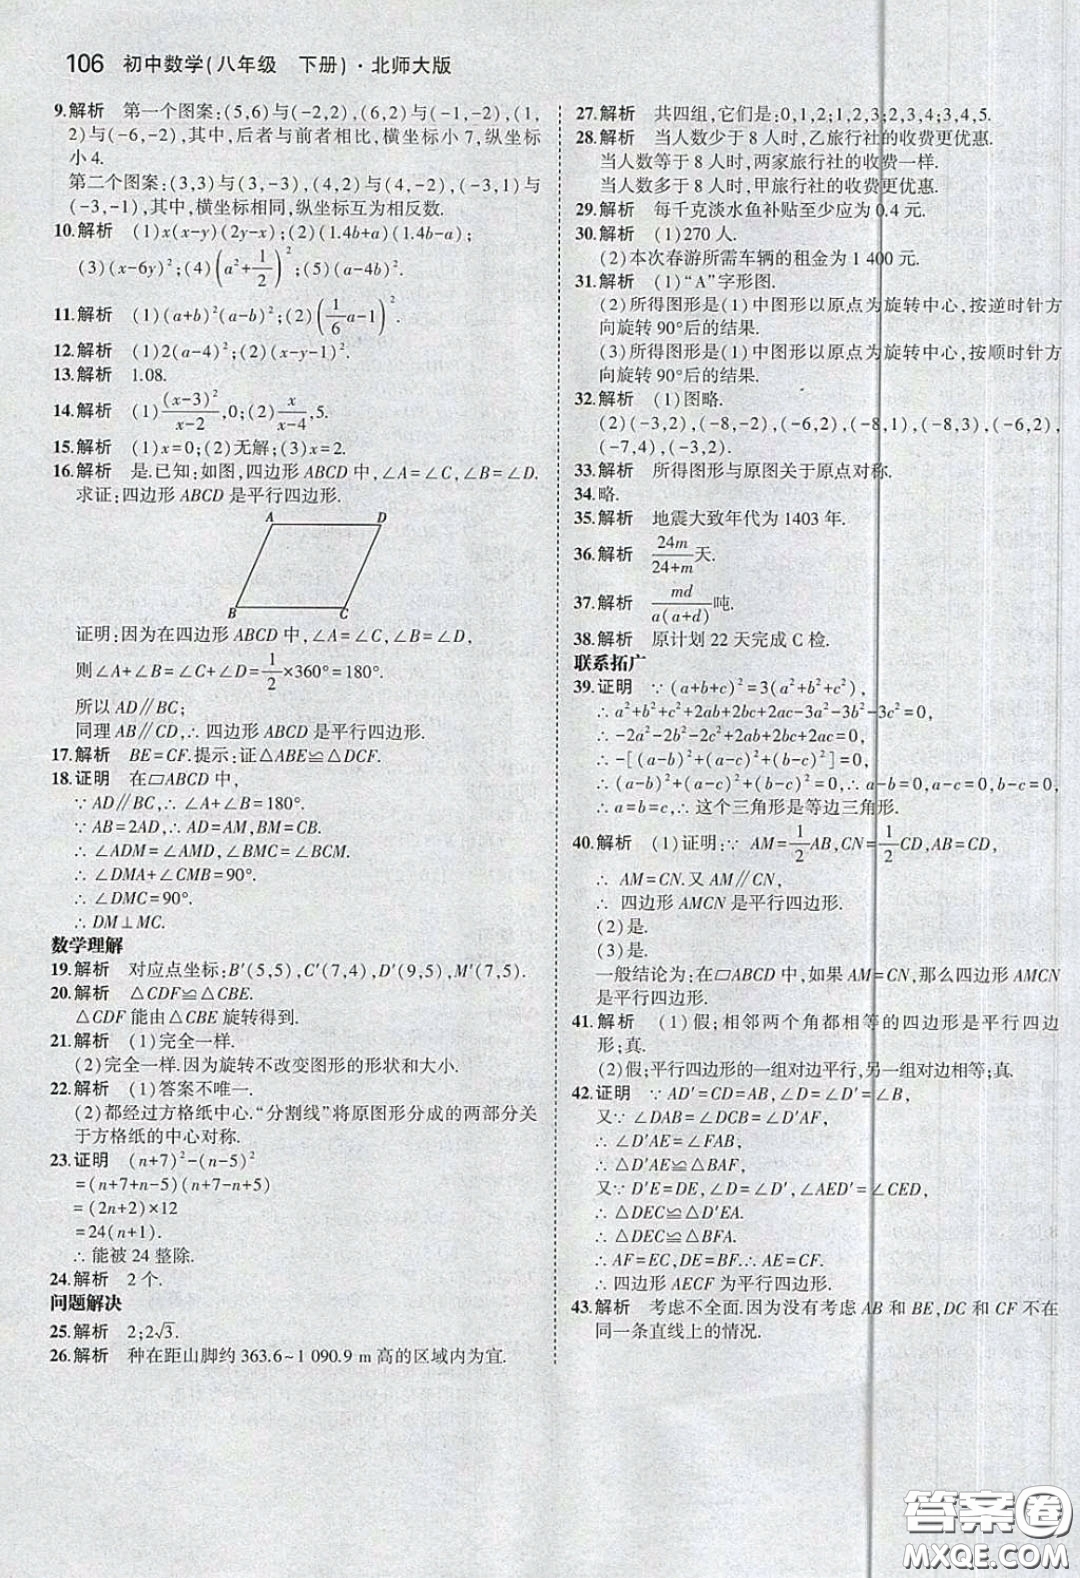 106 初中数学(八年级 下册)·北师大版
9.解析 第一个图案:(5,6)与(-2,2),(6,2)与(-1,-2),(1,
2)与(-6,-2),其中,后者与前者相比,横坐标小7,纵坐标
小4.
第二个图案:(3,3)与(3,-3),(4,2)与(4,-2),(-3,1)与
(-3,-1),其中,横坐标相同,纵坐标互为相反数.
10.解析 (1)x(x-y)(2y-x);(2)(1.4b+a)(1.4b-a);
(3)(x-6y)²;(4)(a²+1/2)²;(5)(a-4b)².
11.解析 (1)(a+b)²(a-b)²;(2)(1/6a-1)².
12.解析 (1)2(a-4)²;(2)(x-y-1)².
13.解析 1.08.
14.解析 (1)(x-3)²/x-2,0;(2)x/x-4,5.
15.解析 (1)x=0;(2)无解;(3)x=2.
16.解析 是.已知:如图,四边形ABCD中,∠A=∠C,∠B=∠D.
求证:四边形ABCD是平行四边形.
A D
B C
证明:因为在四边形ABCD中,∠A=∠C,∠B=∠D,
则∠A+∠B=∠C+∠D=1/2×360°=180°.
所以AD∥BC;
同理AB∥CD,∴四边形ABCD是平行四边形.
17.解析 BE=CF.提示:证△ABE≌△DCF.
18.证明 在▱ABCD中,
∵AD∥BC,∴∠A+∠B=180°.
∵AB=2AD,∴AD=AM,BM=CB.
∴∠ADM=∠AMD,∠BMC=∠BCM.
∴∠DMA+∠CMB=90°.
∴∠DMC=90°.
∴DM⊥MC.
数学理解
19.解析 对应点坐标:B′(5,5),C′(7,4),D′(9,5),M′(7,5).
20.解析 △CDF≌△CBE.
△CDF能由△CBE旋转得到.
21.解析 (1)完全一样.
(2)完全一样.因为旋转不改变图形的形状和大小.
22.解析 (1)答案不唯一.
(2)都经过方格纸中心.“分割线”将原图形分成的两部分关
于方格纸的中心对称.
23.证明 (n+7)²-(n-5)²
=(n+7+n-5)(n+7-n+5)
=(2n+2)×12
=24(n+1).
∴能被24整除.
24.解析 2个.
问题解决
25.解析 2;2√3.
26.解析 种在距山脚约363.6~1 090.9 m高的区域内为宜.
27.解析 共四组,它们是:0,1,2;1,2,3;2,3,4;3,4,5.
28.解析 当人数少于8人时,乙旅行社的收费更优惠.
当人数等于8人时,两家旅行社的收费一样.
当人数多于8人时,甲旅行社的收费更优惠.
29.解析 每千克淡水鱼补贴至少应为0.4元.
30.解析 (1)270人.
(2)本次春游所需车辆的租金为1 400元.
31.解析 (1)“A”字形图.
(2)所得图形是(1)中图形以原点为旋转中心,按逆时针方
向旋转90°后的结果.
(3)所得图形是(1)中图形以原点为旋转中心,按顺时针方
向旋转90°后的结果.
32.解析 (1)图略.
(2)(-3,2),(-8,-2),(-6,2),(-8,1),(-8,3),(-6,2),
(-7,4),(-3,2).
33.解析 所得图形与原图关于原点对称.
34.略.
35.解析 地震大致年代为1403年.
36.解析 24m/24+m天.
37.解析 md/a(a+d)吨.
38.解析 原计划22天完成C检.
联系拓广
39.证明 ∵(a+b+c)²=3(a²+b²+c²),
∴a²+b²+c²+2ab+2bc+2ac-3a²-3b²-3c²=0,
∴-2a²-2b²-2c²+2ab+2bc+2ac=0,
∴-[(a-b)²+(a-c)²+(b-c)²]=0,
∴(a-b)²+(a-c)²+(b-c)²=0,∴a-b=0,a-c=0,b-c=0,
∴a=b=c,∴这个三角形是等边三角形.
40.解析 (1)证明:∵AM=1/2AB,CN=1/2CD,AB=CD,
∴AM=CN.又AM∥CN,
∴四边形AMCN是平行四边形.
(2)是.
(3)是.
一般结论为:在▱ABCD中,如果AM=CN,那么四边形AMCN
是平行四边形.
41.解析 (1)假;相邻两个角都相等的四边形是平行四边
形;真.
(2)假;平行四边形的一组对边平行,另一组对边相等;真.
42.证明 ∵AD′=CD=AB,∠D=∠D′=∠B,
又∵∠DAB=∠DCB=∠D′AF,
∴∠D′AE=∠FAB,
∴△D′AE≌△BAF,
又∵D′E=DE,∠D=∠D′,∠AED′=∠CED,
∴△DEC≌△D′EA.
∴△DEC≌△BFA.
∴AF=EC,DE=BF.∴AE=CF.
∴四边形AECF为平行四边形.
43.解析 考虑不全面.因为没有考虑AB和BE,DC和CF不在
同一条直线上的情况.
答案圈
MXQE.COM